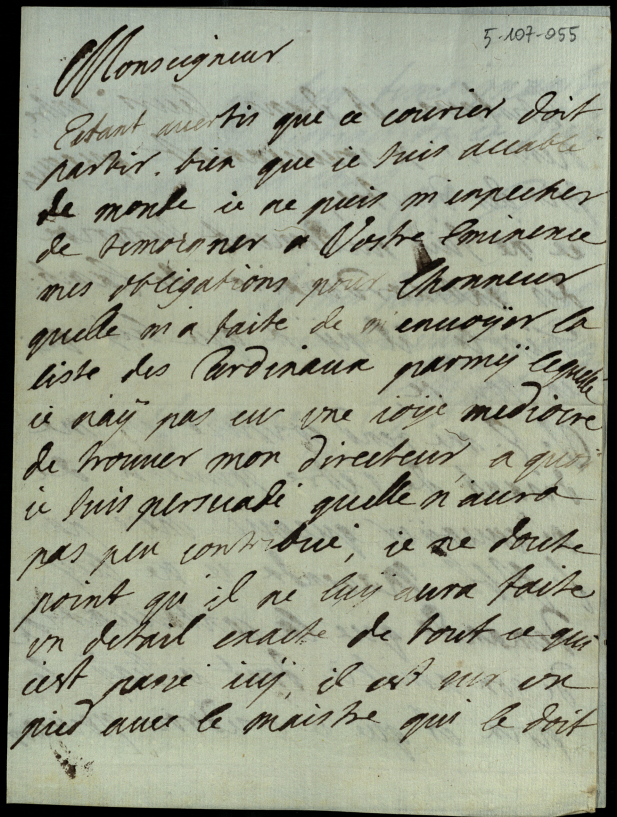 5-107-055
Monseigneur
Estant avertis que ce courier doit
partir. bien que ie suis accablé
de monde ie ne puis m'enpecher
de temoigner a Vostre Eminence
mes obligations pour lhonneur
quelle m'a faite de m'envoÿer la
liste des Cardinaux parmÿ lequelle
ie naÿ pas eu une ioÿe mediocre
de trouver mon directeur a quoi
ie suis persuadé quelle n'aura
pas peu contribué, ie ne doute
point qu'il ne luÿ aura faite
un detail exacte de tout ce qui
cest passé icÿ, il est sur un
pied avec le maistre qui le doit